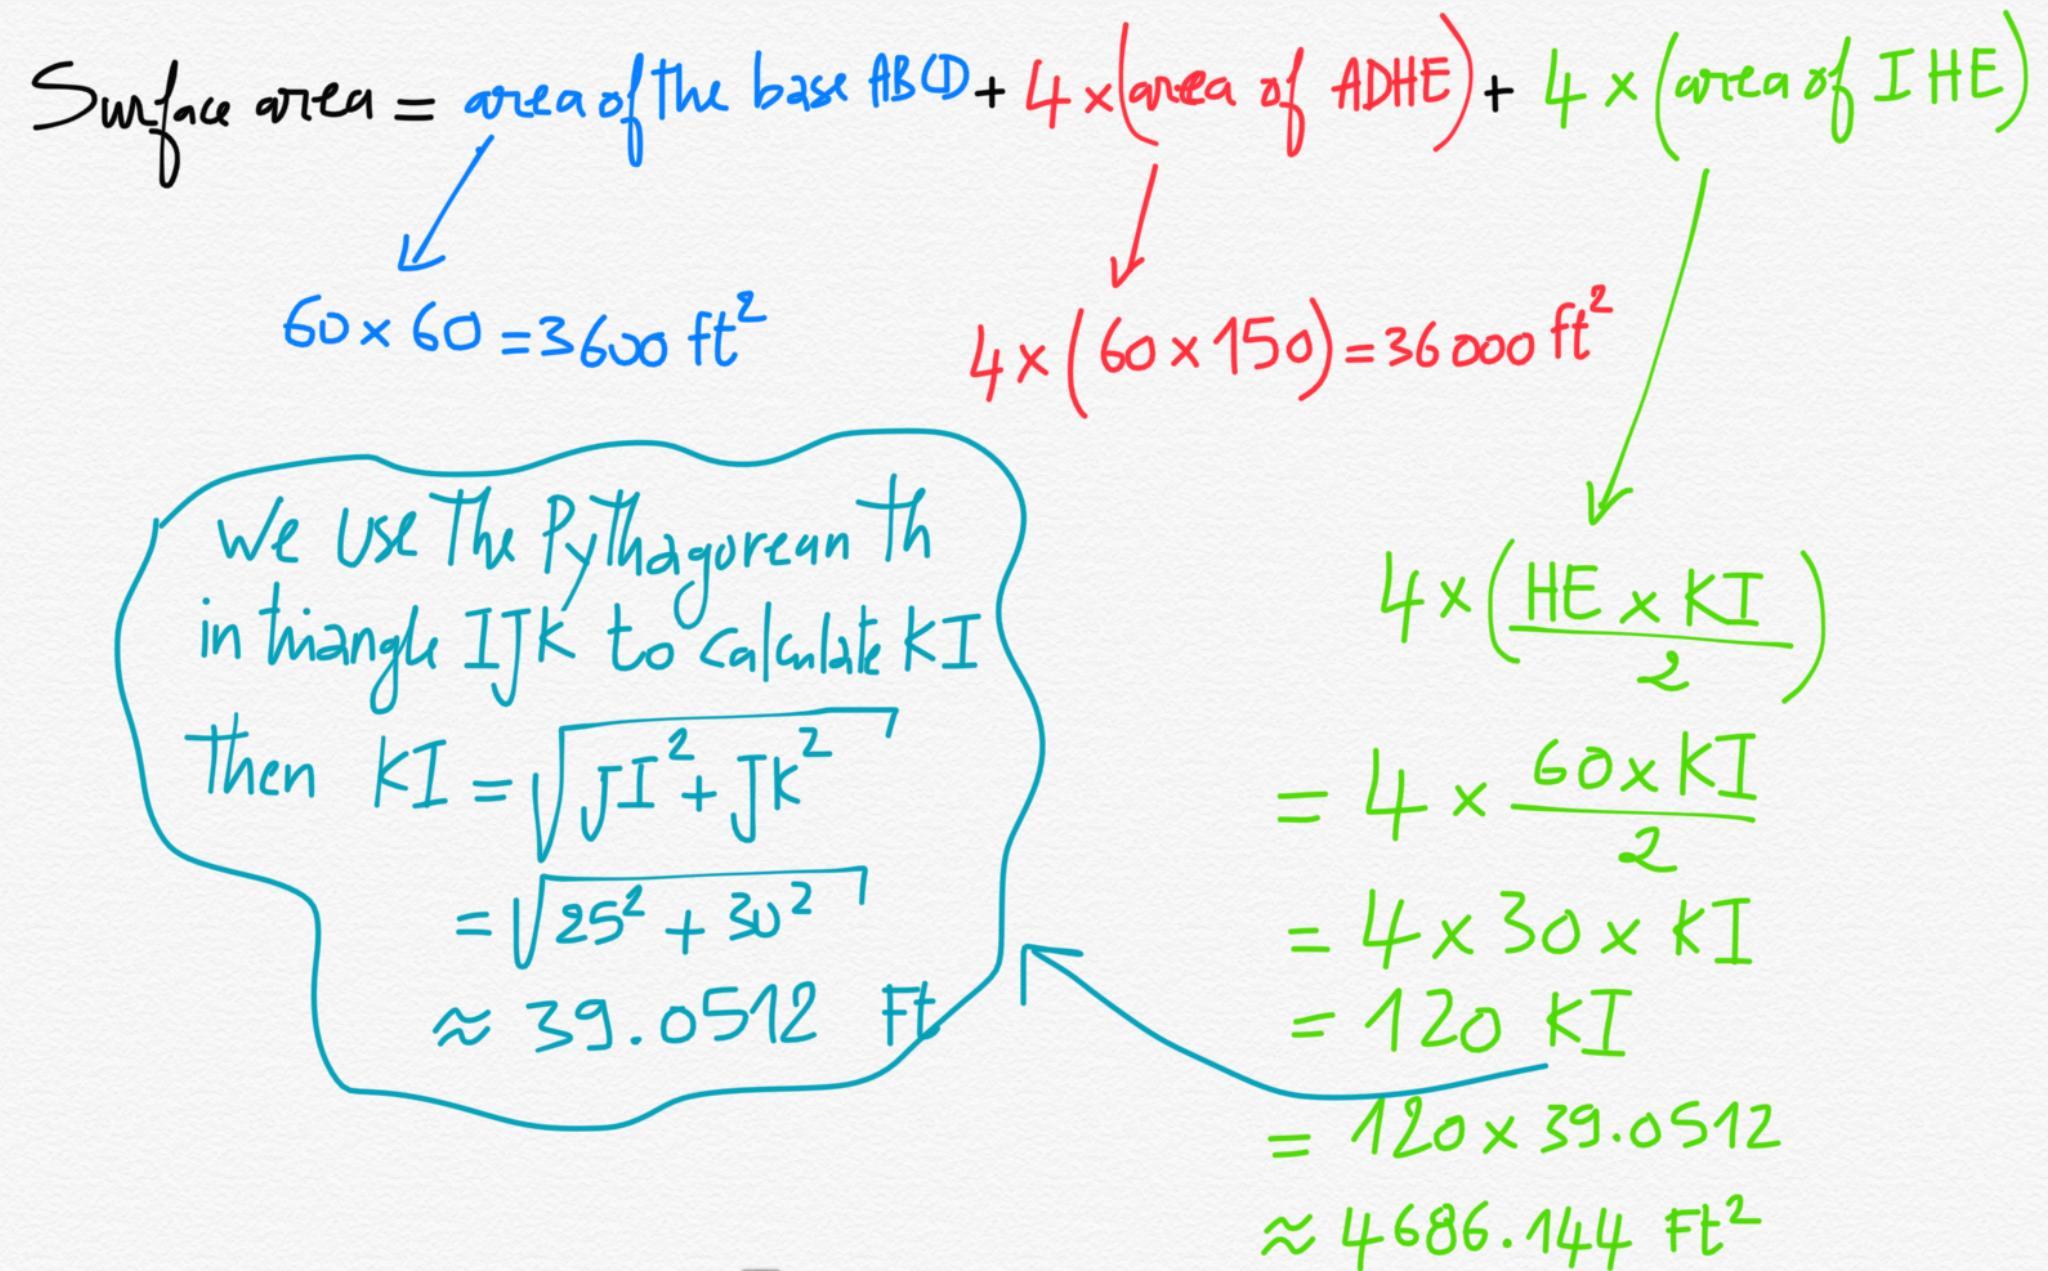 Surface area = area of the base ABCD + 4 × (area of ADHE) + 4 × (area of IHE)
60 × 60 = 3600 ft²
4 × (60 × 150) = 36000 ft²
We use the Pythagorean th
in triangle IJK to calculate KI
then KI = √(JI² + JK²)
= √(25² + 30²)
≈ 39.0512 Ft
4 × (HE × KI / 2)
= 4 × 60 × KI / 2
= 4 × 30 × KI
= 120 KI
= 120 × 39.0512
≈ 4686.144 Ft²